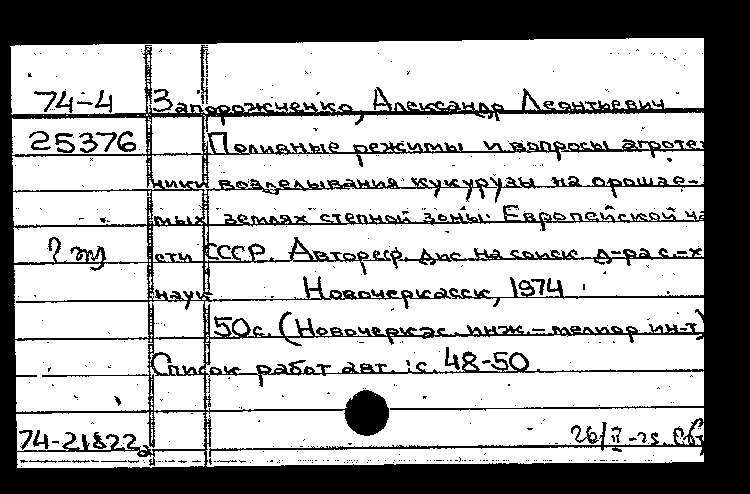 74-4 Запорожченко, Александр Леонтьевич
25376 Поливные режимы и вопросы агротех
ники возделывания кукурузы на орошае-
мых землях степной зоны Европейской ча
сти СССР. Автореф. дис. на соиск. д-ра с.-х
наук Новочеркасск, 1974
50с. (Новочеркас. инж.-мелиор ин-т)
Список работ авт.: с. 48-50.
74-21822 26/II-75.